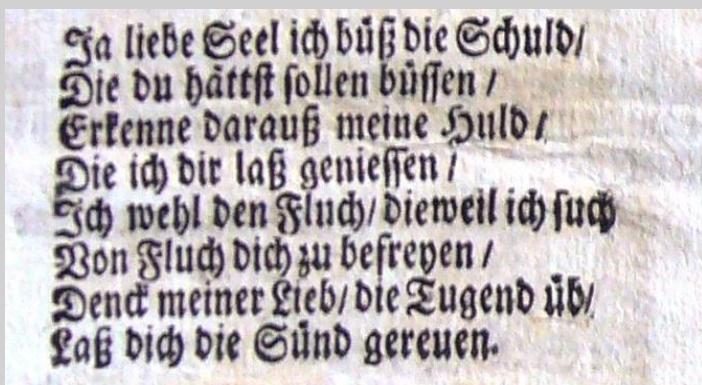 Ja liebe Seel ich büß die Schuld/
Die du hättſt ſollen büſſen/
Erkenne darauß meine Huld/
Die ich dir laß genieſſen/
Ich wehl den Fluch/ dieweil ich ſuch
Von Fluch dich zu befreyen/
Denck meiner Lieb/ die Tugend üb/
Laß dich die Sünd gereuen.